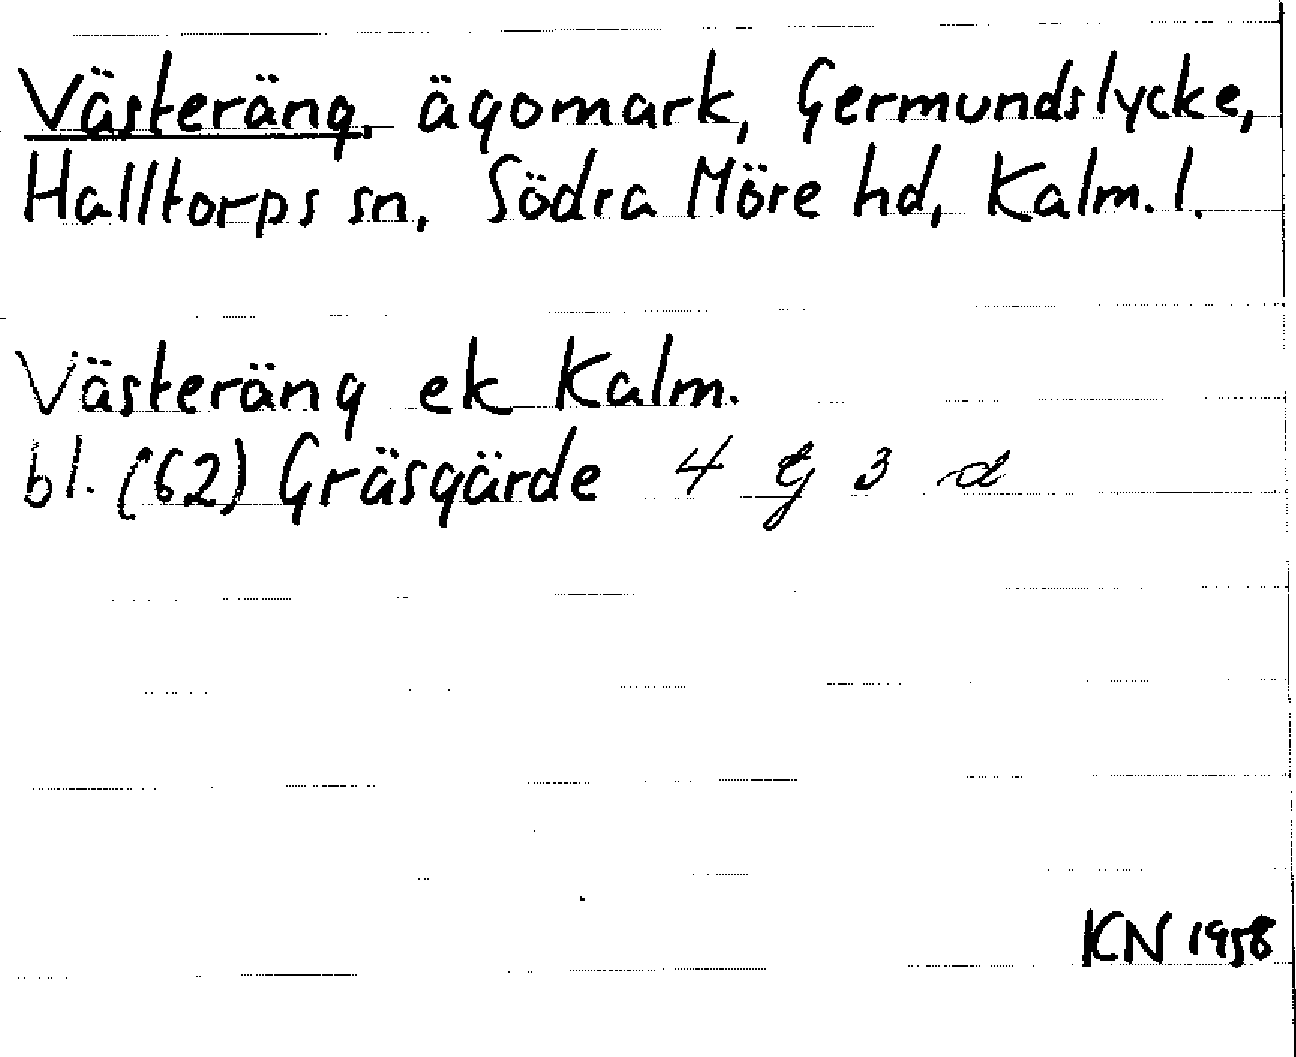 Västeräng, ägomark, Germundslycke,
Halltorps sn, Södra Möre hd, Kalm. l.
Västeräng ek Kalm.
bl. (62) Gräsgärde 4 G 3 d
KN 1958